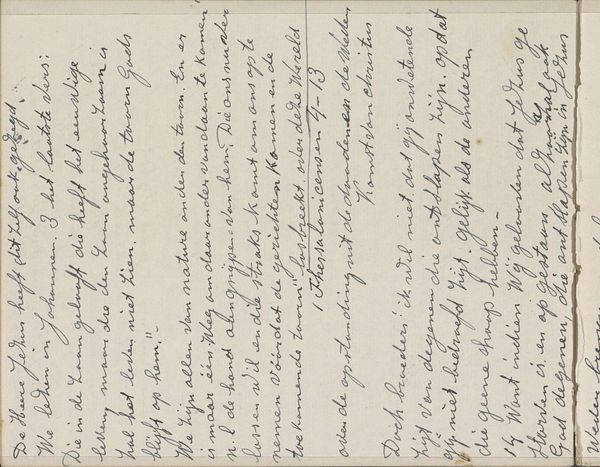 De Heere Jezus heeft dit zelf ook gezegd.
We lezen in Johannes. 3 het laatste vers:
Die in de Zoon gelooft die heeft het eeuwige
leven, maar die den Zoon ongehoorzaam is
zal het leven niet zien, maar de toorn Gods
blijft op hem."-
We zijn allen van nature onder den toorn. En er
is maar één weg om daar onder vandaan te komen
n.l. de hand aangrijpen van hem, Die ons
lossen wil en die straks komt om ons op te
nemen vóórdat de gerichten komen en de
toekomende toorn" losbreekt over deze wereld
1 Thessalonicensen 4-13
over de opstanding uit de dooden en de Weder
Komst van Christus
Doch broeders! ik wil niet dat gij onwetende
zijt van degenen die ontslapen zijn. opdat
gij niet bedroeft zijt. gelijk als de anderen
die geene hoop hebben-
14 Want indien wij gelooven dat Jezus ge
storven is en opgestaan alzoo zal ook
God degenen, die ontslapen zijn in Jezus